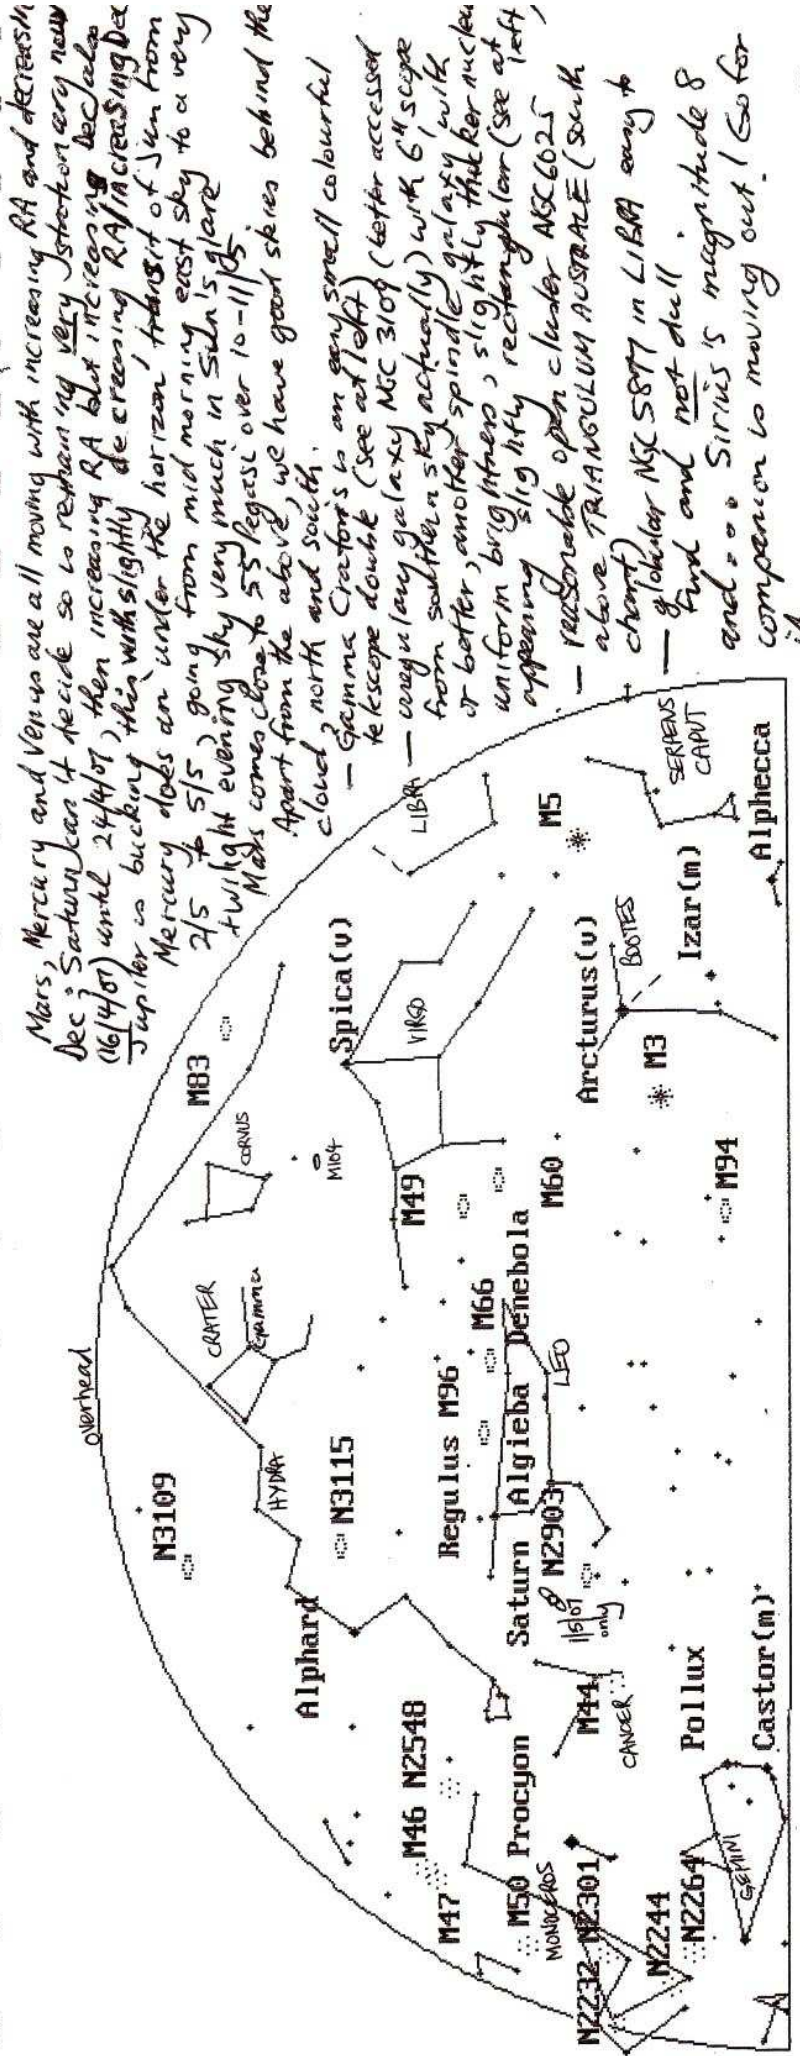 Mars, Mercury and Venus are all moving with increasing RA and decreasin
Dec; Saturn can't decide so is remaining very stationary now
(16/4/07) until 24/4/07, then increasing RA but increasing Declin
Jupiter is bucking this with slightly decreasing RA/increasing Dec
Mercury does an 'under the horizon' transit of Sun from
2/5 to 5/5, going from mid morning east sky to a very
twilight evening sky very much in Sun's glare
Mars comes close to 55 Pegasi over 10-11/05
Apart from the above, we have good skies behind the
cloud, north and south.
— Gamma Crateris is an easy small colourful
telescope double (see at left)
— irregular galaxy NGC 3109 (better accessed
from southern sky actually) with 6" scope
or better, another spindle galaxy with
uniform brightness, slightly thicker nucleu
appearing slightly rectangular (see at left)
— reasonable open cluster NGC6025
above TRIANGULUM AUSTRALE (south
chart)
— globular NGC 5897 in LIBRA easy to
find and not dull.
and... Sirius's magnitude 8
companion is moving out! Go for
it
overhead
N3109
HYDRA
CRATER
Gamma
CORVUS
M83
N3115
Alphard
M104
Spica(v)
LIBRA
VIRGO
M49
M46 N2548
M47
Regulus M96
M66
M60
M5
Procyon
M50
MONOCEROS
Saturn
Algieba
Denebola
N2903
LEO
1/5/07
only
M44
CANCER
Arcturus(v)
BOOTES
M3
SERPENS
CAPUT
N2232
N2301
N2244
N2264
Pollux
M94
Izar(m)
GEMINI
Castor(m)
Alphecca